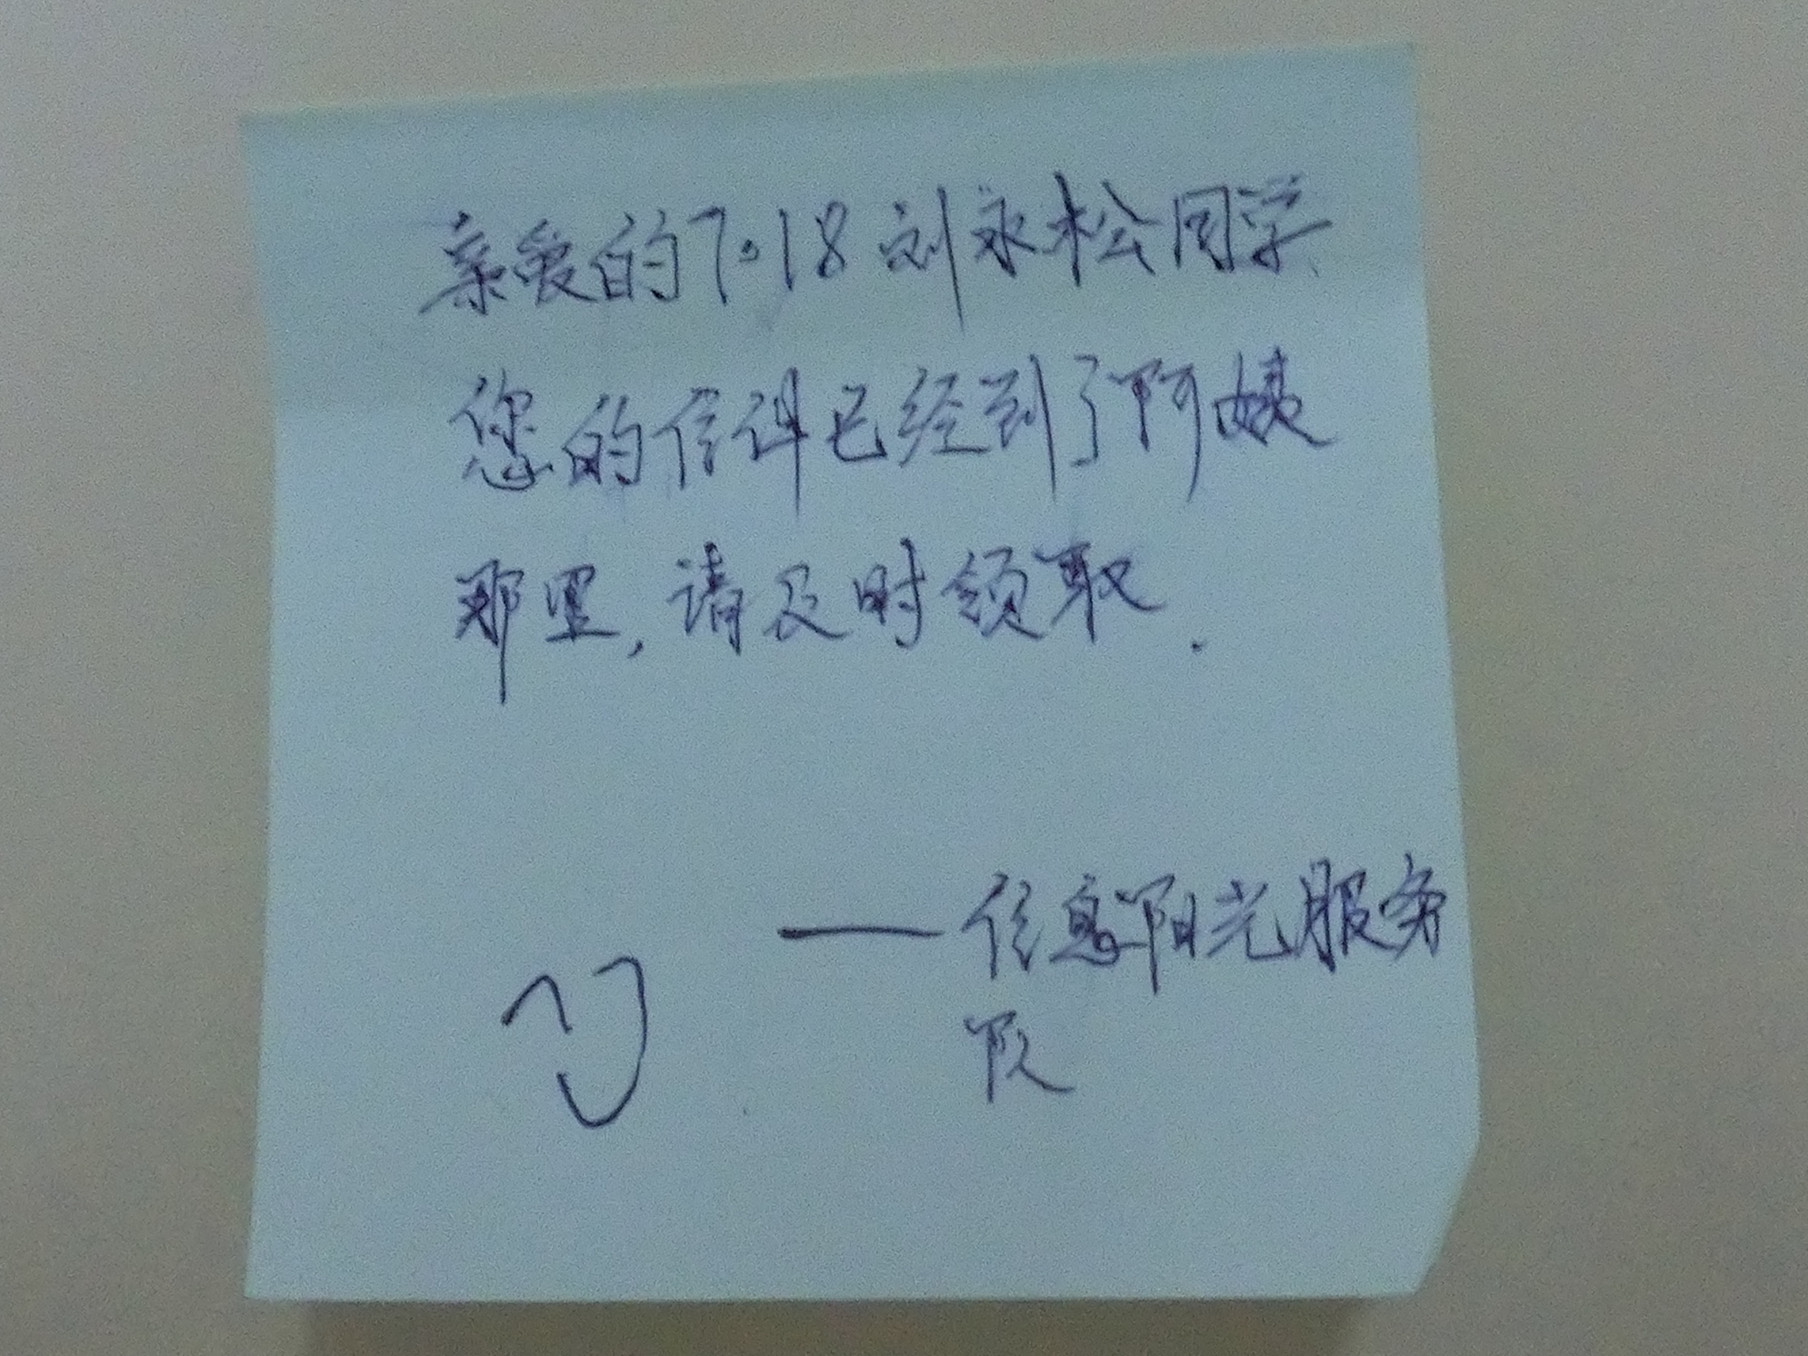 亲爱的7·18刘永松同学
您的信件已经到了阿姨
那里,请及时领取.
——信息阳光服务
队